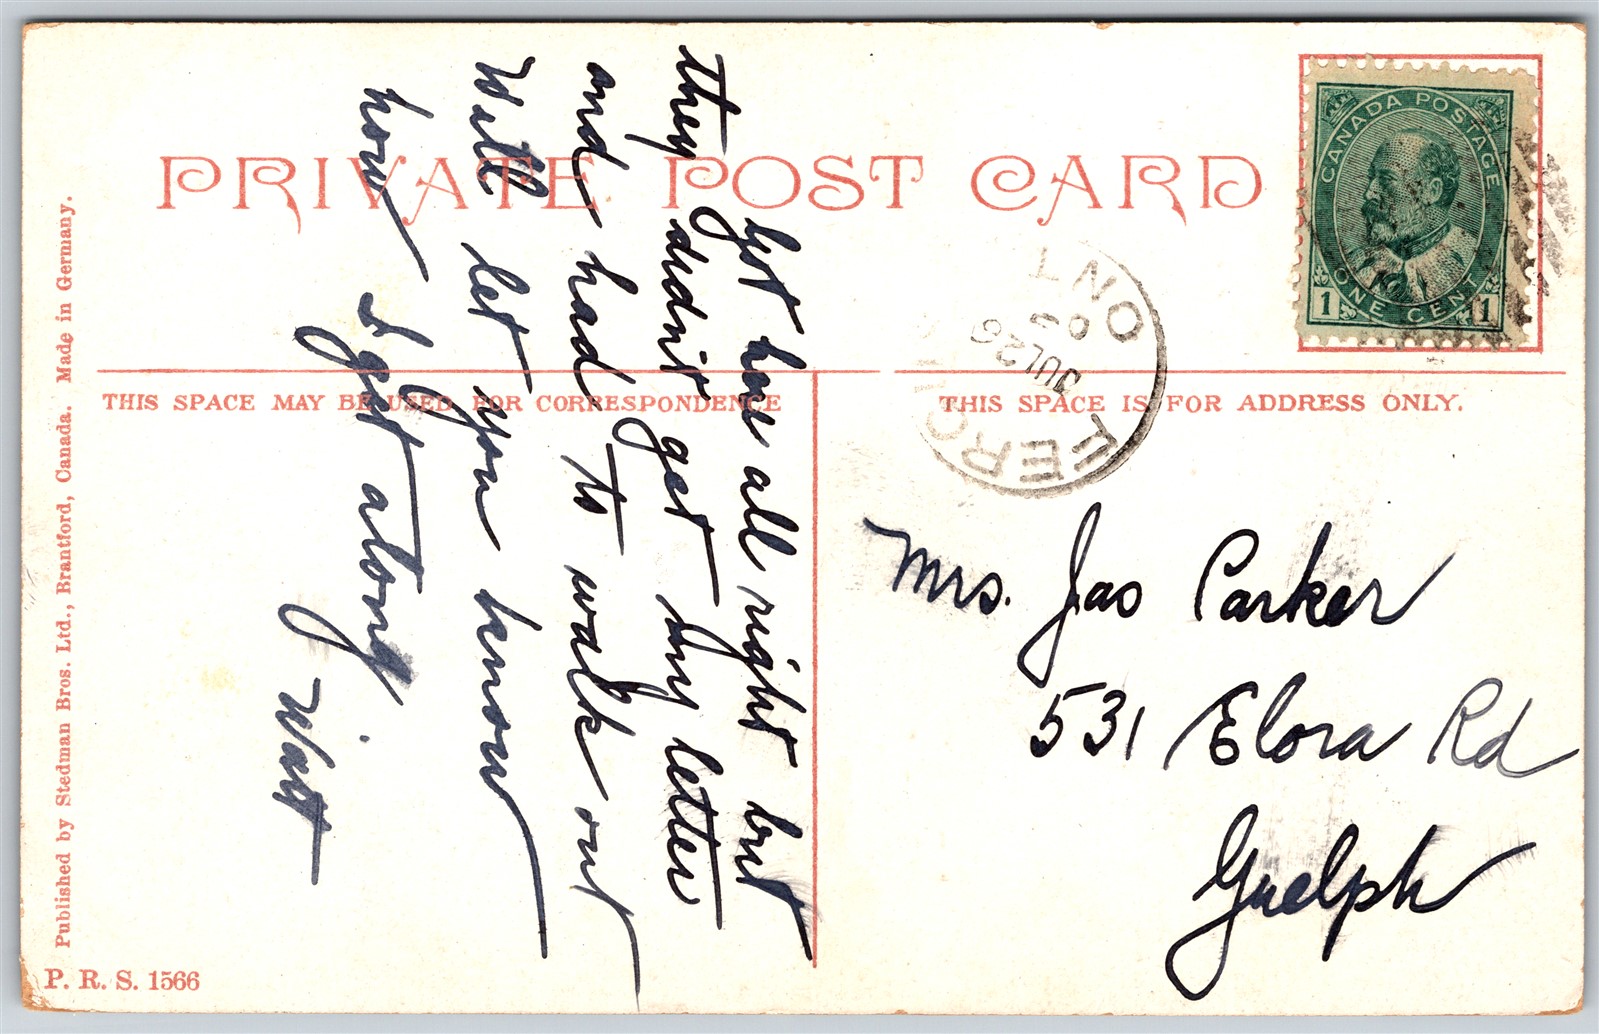 PRIVATE POST CARD
CANADA POSTAGE
ONE CENT
1 1
ONT
JUL 26
09
FERG
THIS SPACE MAY BE USED FOR CORRESPONDENCE
THIS SPACE IS FOR ADDRESS ONLY.
Got here all right but
they didnt get my letter
and had to walk out
Will let you know
how I get along
Mrs. Jas Parker
531 Elora Rd
Guelph
Published by Stedman Bros. Ltd., Brantford, Canada. Made in Germany.
P. R. S. 1566